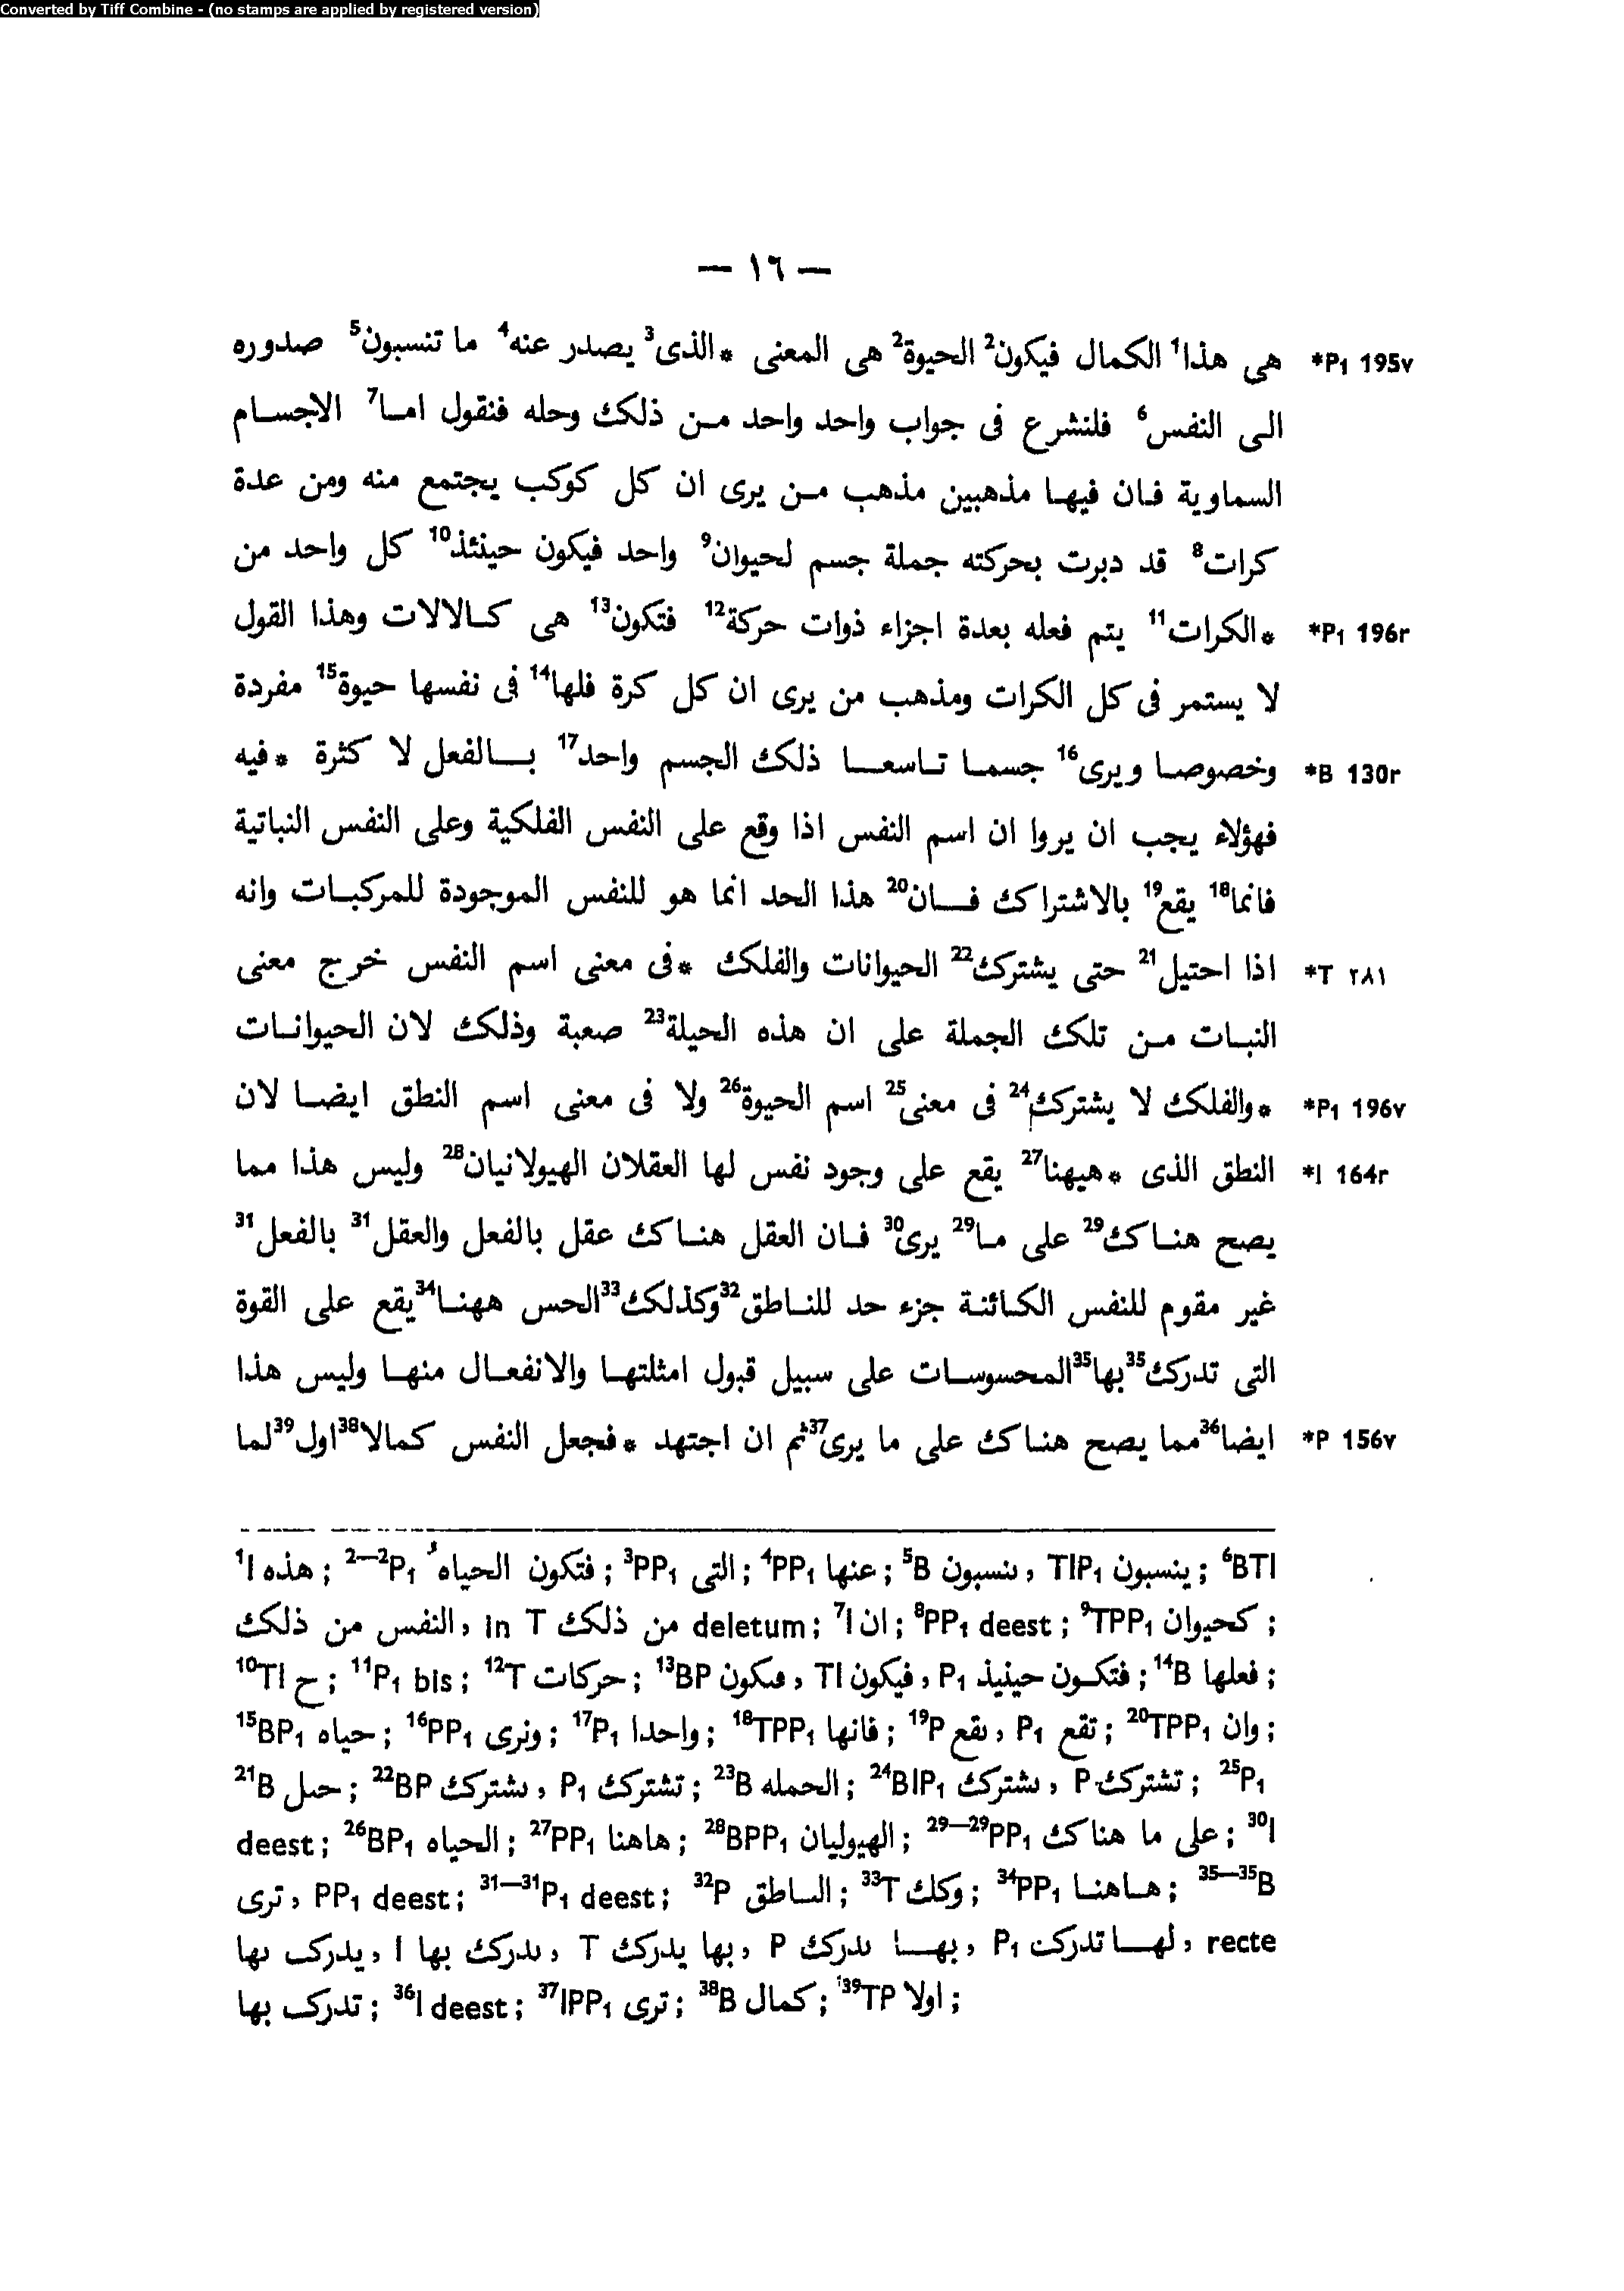 Converted by Tiff Combine - (no stamps are applied by registered version)
— ١٦ —
هى هذا¹ الكمال فيكون² الحيوة² هى المعنى *الذى³ يصدر عنه⁴ ما تنسبون⁵ صدوره *P₁ 195v
الى النفس⁶ فلنشرع فى جواب واحد واحد من ذلك وحله فنقول اما⁷ الاجسام
السماوية فان فيها مذهبين مذهب من يرى ان كل كوكب يجتمع منه ومن عدة
كرات⁸ قد دبرت بحركته جملة جسم لحيوان⁹ واحد فيكون حينئذ¹⁰ كل واحد من
*الكرات¹¹ يتم فعله بعدة اجزاء ذوات حركة¹² فتكون¹³ هى كالالات وهذا القول *P₁ 196r
لا يستمر فى كل الكرات ومذهب من يرى ان كل كرة فلها¹⁴ فى نفسها حيوة¹⁵ مفردة
وخصوصا ويرى¹⁶ جسما تاسعا ذلك الجسم واحد¹⁷ بالفعل لا كثرة *فيه *B 130r
فهؤلاء يجب ان يروا ان اسم النفس اذا وقع على النفس الفلكية وعلى النفس النباتية
فانما¹⁸ يقع¹⁹ بالاشتراك فان²⁰ هذا الحد انما هو للنفس الموجودة للمركبات وانه
اذا احتيل²¹ حتى يشترك²² الحيوانات والفلك *فى معنى اسم النفس خرج معنى *T ٢٨١
النبات من تلك الجملة على ان هذه الحيلة²³ صعبة وذلك لان الحيوانات
*والفلك لا يشترك²⁴ فى معنى²⁵ اسم الحيوة²⁶ ولا فى معنى اسم النطق ايضا لان *P₁ 196v
النطق الذى *هيهنا²⁷ يقع على وجود نفس لها العقلان الهيولانيان²⁸ وليس هذا مما *I 164r
يصح هناك²⁹ على ما²⁹ يرى³⁰ فان العقل هناك عقل بالفعل والعقل³¹ بالفعل³¹
غير مقوم للنفس الكائنة جزء حد للناطق³² وكذلك³³ الحس ههنا³⁴ يقع على القوة
التى تدرك³⁵ بها³⁵ المحسوسات على سبيل قبول امثلتها والانفعال منها وليس هذا
ايضا³⁶ مما يصح هناك على ما يرى³⁷ ثم ان اجتهد *فجعل النفس كمالا³⁸ اول³⁹ لما *P 156v
¹I هذه ; ²⁻²P₁ فتكون الحياه ; ³PP₁ التى ; ⁴PP₁ عنها ; ⁵B ىنسبون , TIP₁ ينسبون ; ⁶BTI
النفس من ذلك , in T من ذلك deletum ; ⁷I ان ; ⁸PP₁ deest ; ⁹TPP₁ كحيوان ;
¹⁰TI ح ; ¹¹P₁ bis ; ¹²T حركات ; ¹³BP ڡىكون , TI فيكون , P₁ فتكون حينيذ ; ¹⁴B فعلها ;
¹⁵BP₁ حياه ; ¹⁶PP₁ ونرى ; ¹⁷P₁ واحدا ; ¹⁸TPP₁ فانها ; ¹⁹P ىقع , P₁ تقع ; ²⁰TPP₁ وان ;
²¹B حىل ; ²²BP ىشترك , P₁ تشترك ; ²³B الحمله ; ²⁴BIP₁ ىشترك , P تشترك ; ²⁵P₁
deest ; ²⁶BP₁ الحياه ; ²⁷PP₁ هاهنا ; ²⁸BPP₁ الهيوليان ; ²⁹⁻²⁹PP₁ على ما هناك ; ³⁰I
ترى , PP₁ deest ; ³¹⁻³¹P₁ deest ; ³²P الىاطق ; ³³T وكلك ; ³⁴PP₁ هاهنا ; ³⁵⁻³⁵B
يدرک ىها , I ىدرك بها , T بها يدرك , P بها ىدرك , P₁ لها تدرك , recte
تدرک بها ; ³⁶I deest ; ³⁷IPP₁ ترى ; ³⁸B كمال ; ³⁹TP اولا ;